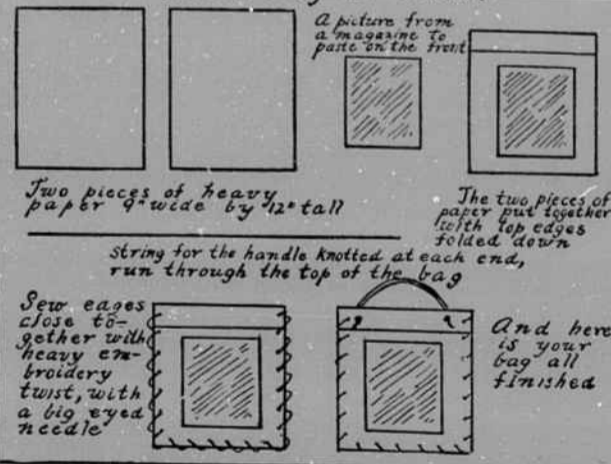 A picture from
a magazine to
paste on the front
Two pieces of heavy
paper 9" wide by 12" tall
The two pieces of
paper put together
with top edges
folded down
String for the handle knotted at each end,
run through the top of the bag
Sew edges
close to-
gether with
heavy em-
broidery
twist, with
a big eyed
needle
And here
is your
bag all
finished